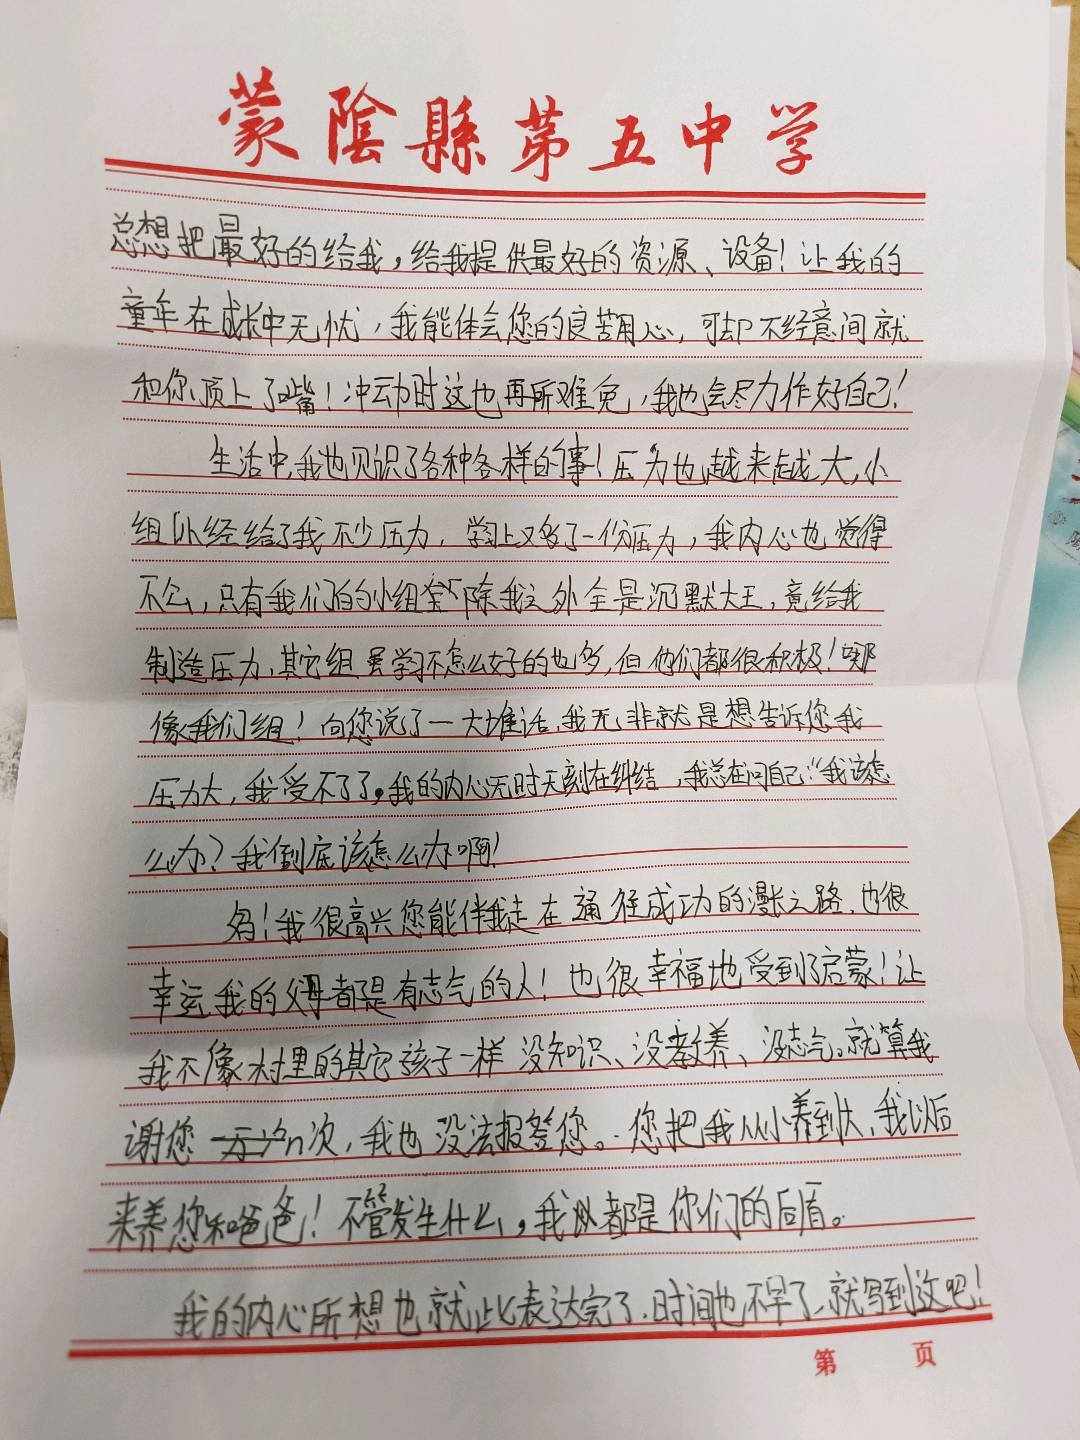 蒙陰縣第五中学
总想把最好的给我,给我提供最好的资源、设备!让我的
童年在成长中无忧,我能体会您的良苦用心,可却不经意间就
和你顶上了嘴!冲动时这也再所难免,我也会尽力作好自己!
生活中,我也见识了各种各样的事!压力也越来越大,小
组已经给了我不少压力,学习上又多了一份压力,我内心也觉得
不公,只有我们的小组除我之外全是沉默大王,竟给我
制造压力,其它组虽学习不怎么好的也多,但他们都很积极!哪
像我们组!向您说了一大堆话,我无非就是想告诉您我
压力大,我受不了了。我的内心无时无刻在纠结,我总在问自己:“我该怎
么办?我到底该怎么办啊!
妈!我很高兴您能伴我走在通往成功的漫长之路,也很
幸运我的父母都是有志气的人!也很幸福地受到了启蒙!让
我不像村里的其它孩子一样没知识、没教养、没志气。就算我
谢您n次,我也没法报答您。您把我从小养到大,我以后
来养您和爸爸!不管发生什么,我都是你们的后盾。
我的内心所想也就此表达完了,时间也不早了,就写到这吧!
第 页